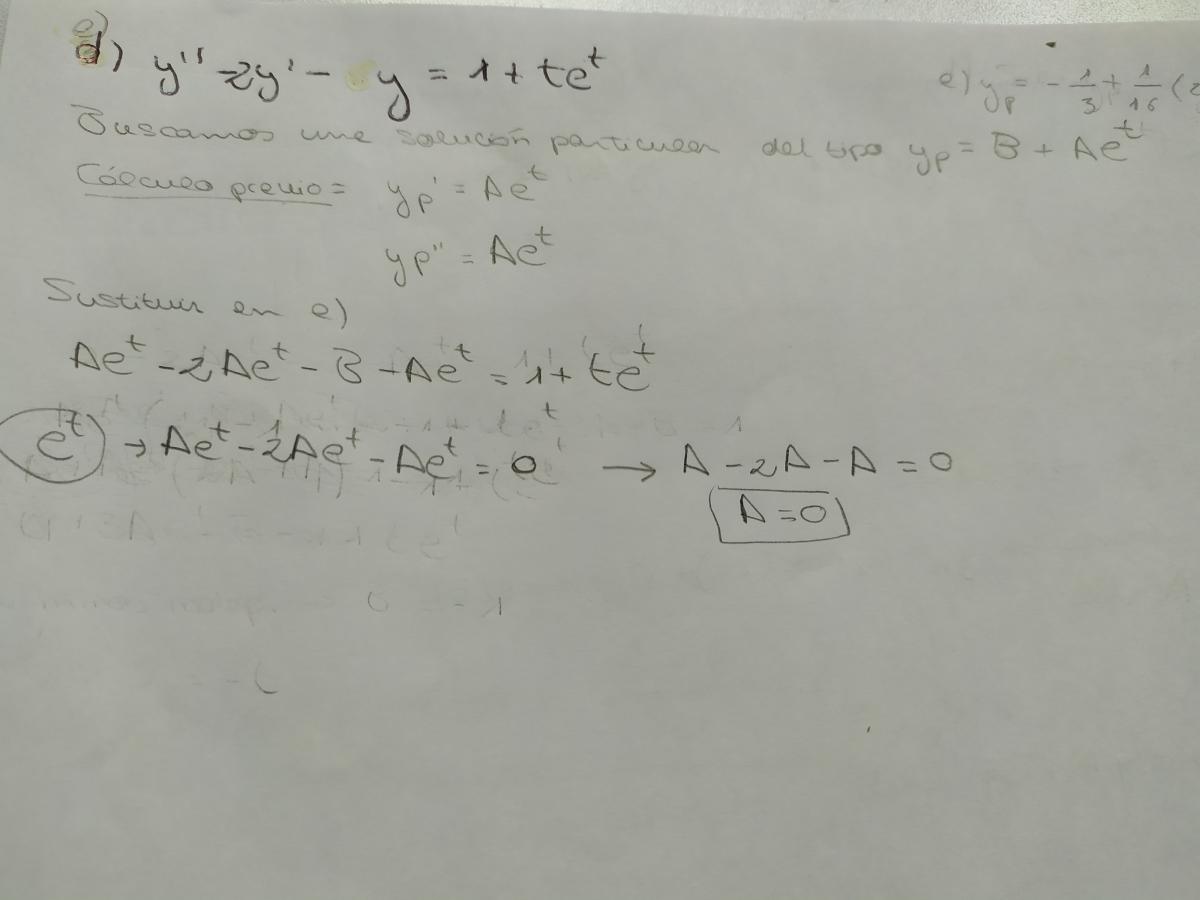 e)
d) y'' - 2y' - y = 1 + te^t
e) y_p = - 1/3 + 1/16 (2
Buscamos una solución particular del tipo y_p = B + Ae^t
Cálculo previo = y_p' = Ae^t
y_p'' = Ae^t
Sustituir en e)
Ae^t - 2Ae^t - B - Ae^t = 1 + te^t
e^t → Ae^t - 2Ae^t - Ae^t = 0 → A - 2A - A = 0
A = 0